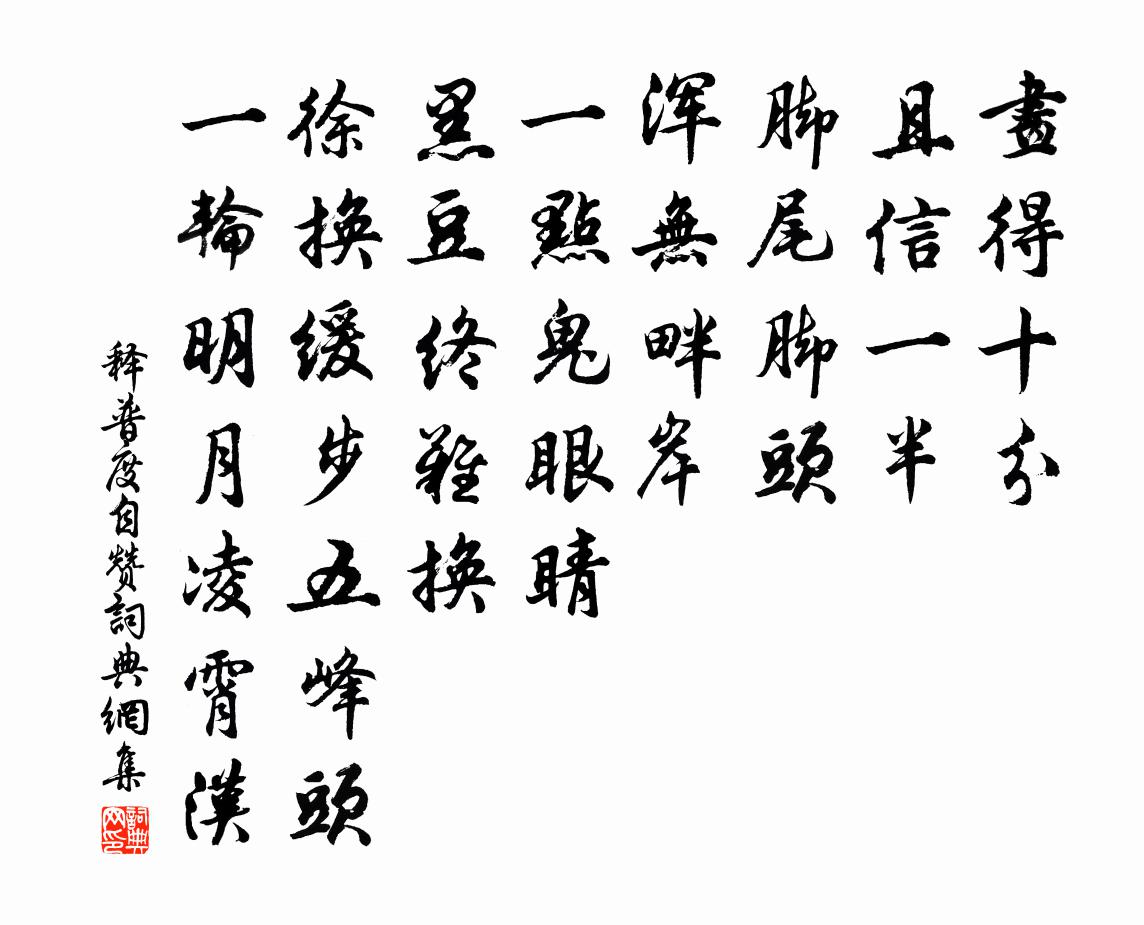 畫得十分
且信一半
脚尾脚頭
渾無畔岸
一點鬼眼睛
黑豆终難換
徐換緩步五峰頭
一輪明月凌霄漢
释普度自赞詞典網集
詞典网印